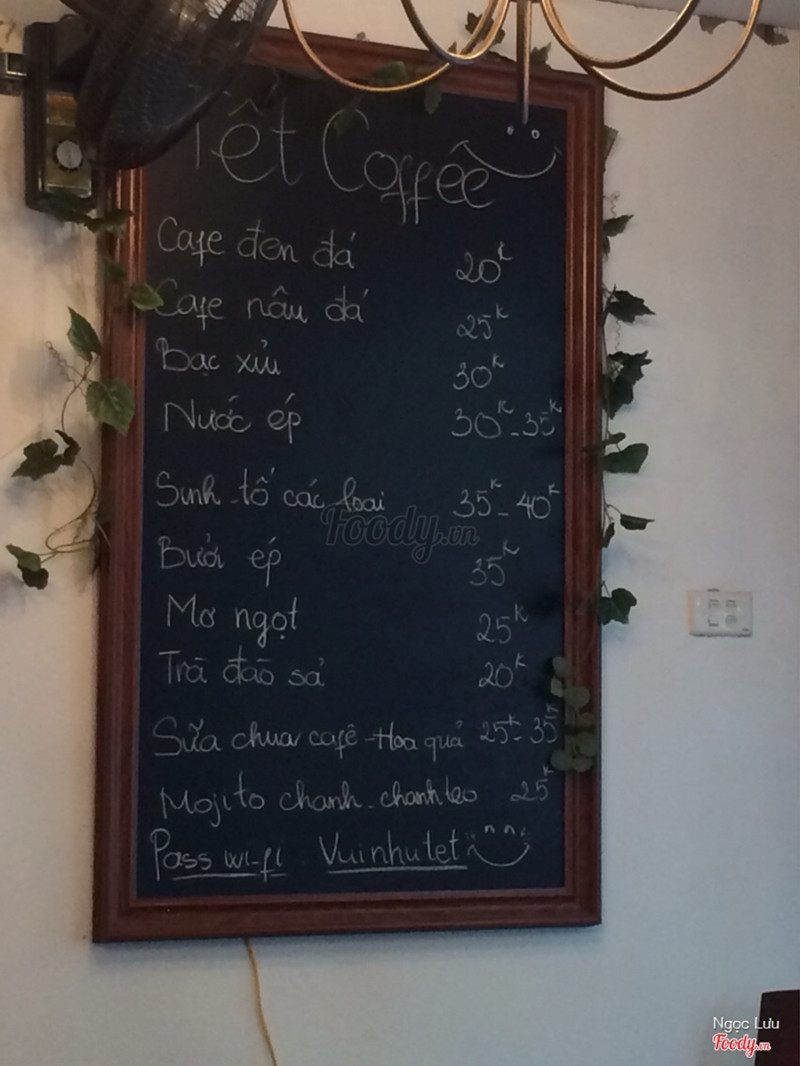 Tết Coffee
Cafe đen đá 20k
Cafe nâu đá 25k
Bạc xỉu 30k
Nước ép 30k - 35k
Sinh tố các loại 35k - 40k
Foody.vn
Bưởi ép 35k
Mơ ngọt 25k
Trà đào sả 20k
Sữa chua café - Hoa quả 25k - 35k
Mojito chanh - chanh leo 25k
Pass wi-fi Vuinhutet
Ngọc Lưu
Foody.vn